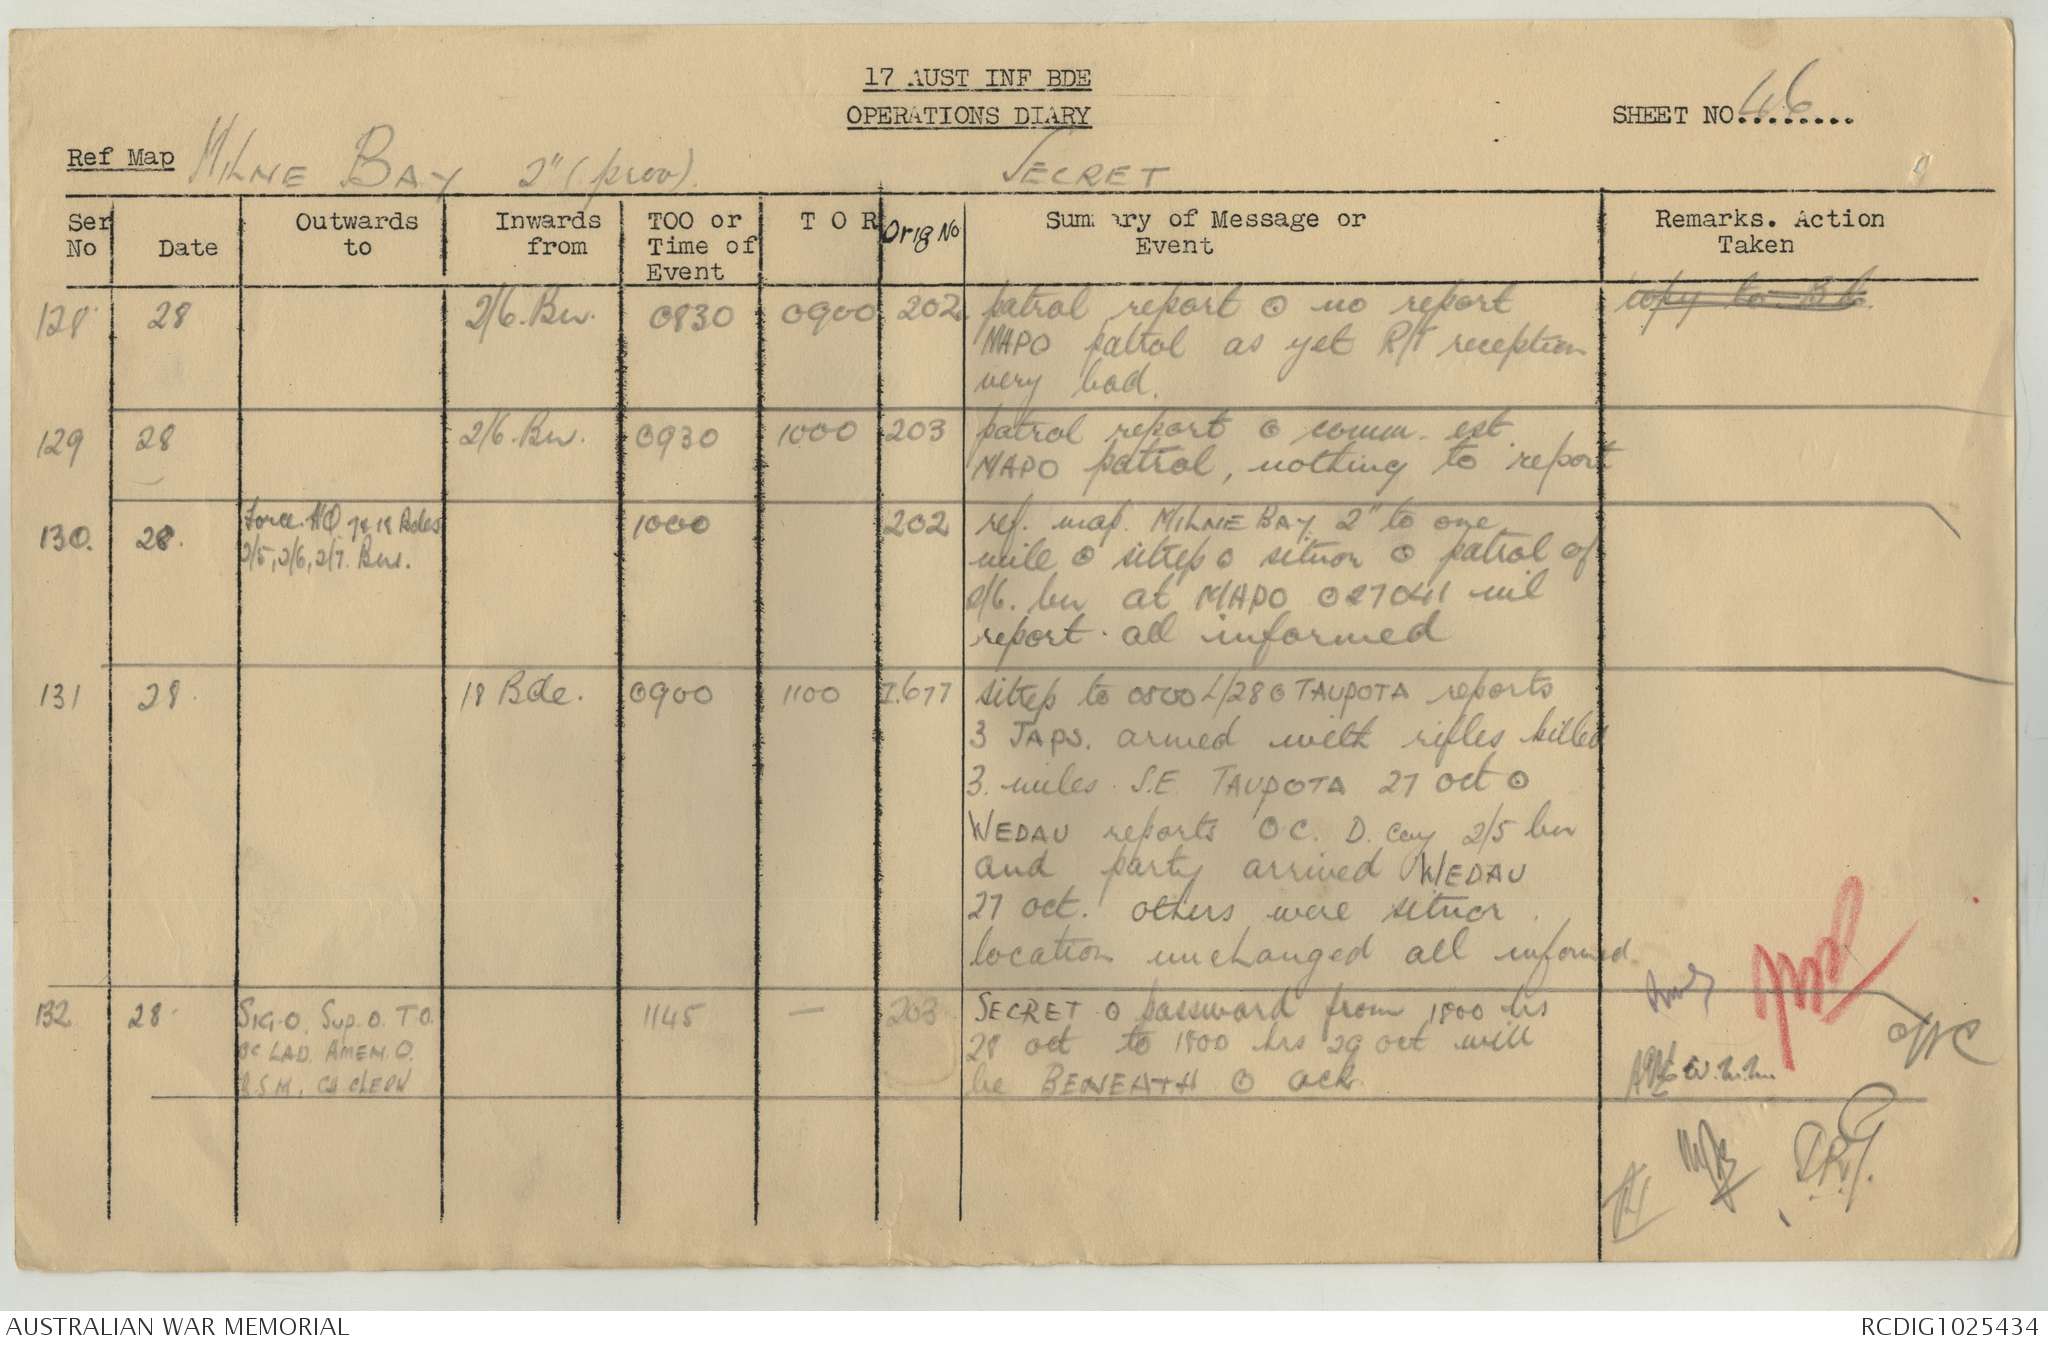 17 AUST INF BDE
OPERATIONS DIARY
SHEET NO 46
Ref Map MILNE BAY 2" (prov).
SECRET
Ser No
Date
Outwards to
Inwards from
TOO or Time of Event
T O R
Orig No
Summary of Message or Event
Remarks. Action Taken
128 28 2/6. Bn. 0830 0900 202 patrol report ⊙ no report
MAPO patrol as yet R/T reception
very bad.
copy to
129 28 2/6. Bn. 0930 1000 203 patrol report ⊙ comm. est.
MAPO patrol, nothing to report
130. 28. Force. HQ 7 & 18 Bdes 1000 202 ref. map. MILNE BAY 2" to one
2/5, 2/6, 2/7. Bns. mile ⊙ sitrep ⊙ situor ⊙ patrol of
2/6. bn at MAPO 027041 nil
report. all informed
131 28. 18 Bde. 0900 1100 I.677 sitrep to 0800L/28 ⊙ TAUPOTA reports
3 JAPS. armed with rifles killed
3. miles S.E. TAUPOTA 27 oct ⊙
WEDAU reports OC. D. coy 2/5 bn
and party arrived WEDAU
27 oct. others were situor
location unchanged all informed.
132 28. SIG. O. SUP. O. T O. 1145 — 203 SECRET ⊙ password from 1800 hrs
OC LAD. AMEN. O. 28 oct to 1800 hrs 29 oct will
R.S.M. CH CLERK be BENEATH ⊙ ack
AUSTRALIAN WAR MEMORIAL
RCDIG1025434